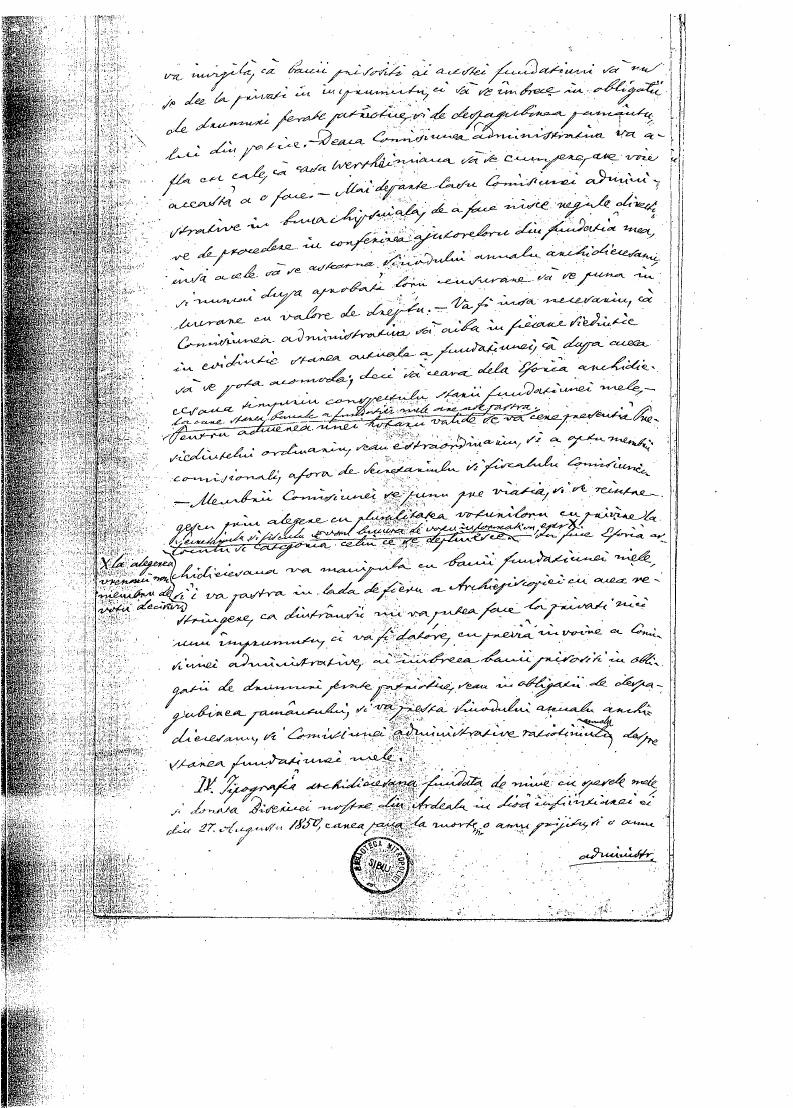 va invigila, că banii prisositi ai acestei fundatiuni să nu
se dee la privati in imprumutu, ci să se îmbrece in obligatii
de drumuri ferate patriotice, si de despagubirea pamântu
lui din patrie. – Deaca Comisiunea administrativa va a-
fla cu cale, că casa Wertheimiana să se cumpere, are voie
aceasta a o face. – Mai departe lasu Comisiunei admini-
strative in buna chipsuiala, de a face nisce regule directi
ve de procedere in conferirea ajutoreloru din fundatia mea,
insă acele să se astearna Sinodului anualu archidiecesanu,
si numai dupa aprobat'a lorŭ censurare să se puna in
lucrare cu valore de dreptu. – Va fi insa necesariu, că
Comisiunea administrativa să aiba in fiecare Siedintie
in evidintie starea actuale a fundatiunei, că dupa aceea
să se pota acomoda; deci să ceara dela Eforia archidie-
cesana timpuriu conspectulu starii fundatiunei mele, –
Pentru aducerea unei hotariri valide se va cere presentia Pre-
siedintelui ordinariu, seau estraordinariu, si a optu membri
comisionali, afora de Secretariulu si fiscalulu Comisiunei
– Membrii Comisiunei se punu pre viatia, si se reintre-
gescu prin alegere cu pluralitatea voturiloru cu privire la
locului si Categoria celui ce se
X la alegerea
membru
votu decisivu
chidiecesana va manipula cu banii fundatiunei mele,
si i va pastra in lada de fieru a Archiepiscopiei cu acea re-
stringere, ca dintrânsii nu va putea face la privati nici
unu împrumutu, ci va fi datóre, cu previa invoire a Comi-
siunei administrative, ai imbreca banii prisositi in obli-
gatii de drumuri ferate patriotice, seau in obligatii de despa-
gubirea pamântului, si va presta Sinodului anualu archi-
diecesanu, si Comisiunei administrative ratiotiniulu anualu despre
starea fundatiunei mele.
IV. Tipografia archidiecesana fundata de mine cu spesele mele
si donata Bisericei nostre din Ardealu in dioa infiintiarei ei
din 27. Augustu 1850, carea pana la morte-m o amu grijitu, si o amu
administr.
BIBLIOTECA MITROPOLIEI
SIBIU